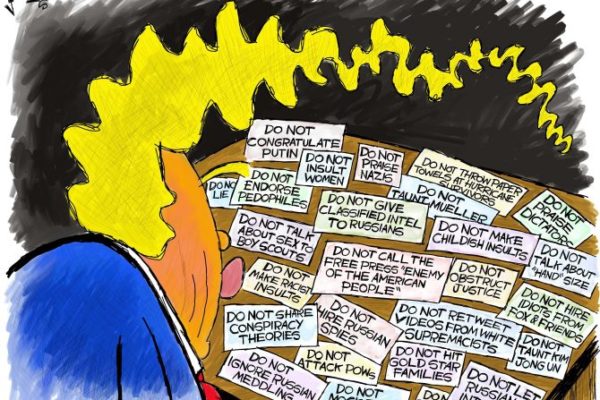 DO NOT
CONGRATULATE
PUTIN
DO NOT
INSULT
WOMEN
DO NOT
PRAISE
NAZIS
DO NOT THROW PAPER
TOWELS AT HURRICANE
SURVIVORS
DO NOT
LIE
DO NOT
ENDORSE
PEDOPHILES
DO NOT
TAUNT MUELLER
DO NOT
PRAISE
DICTATORS
DO NOT GIVE
CLASSIFIED INTEL
TO RUSSIANS
DO NOT TALK
ABOUT SEX TO
BOY SCOUTS
DO NOT MAKE
CHILDISH INSULTS
DO NOT
TALK ABOUT
"HAND" SIZE
DO NOT CALL THE
FREE PRESS "ENEMY
OF THE AMERICAN
PEOPLE"
DO NOT
OBSTRUCT
JUSTICE
DO NOT
MAKE RACIST
INSULTS
DO NOT HIRE
IDIOTS FROM
FOX & FRIENDS
DO NOT SHARE
CONSPIRACY
THEORIES
DO NOT
HIRE RUSSIAN
SPIES
DO NOT RETWEET
VIDEOS FROM WHITE
SUPREMACISTS
DO NOT
TAUNT KIM
JONG UN
DO NOT
IGNORE RUSSIAN
MEDDLING
DO NOT
ATTACK POWS
DO NOT HIT
GOLD STAR
FAMILIES
DO NOT LET
RUSSIAN
DO NOT